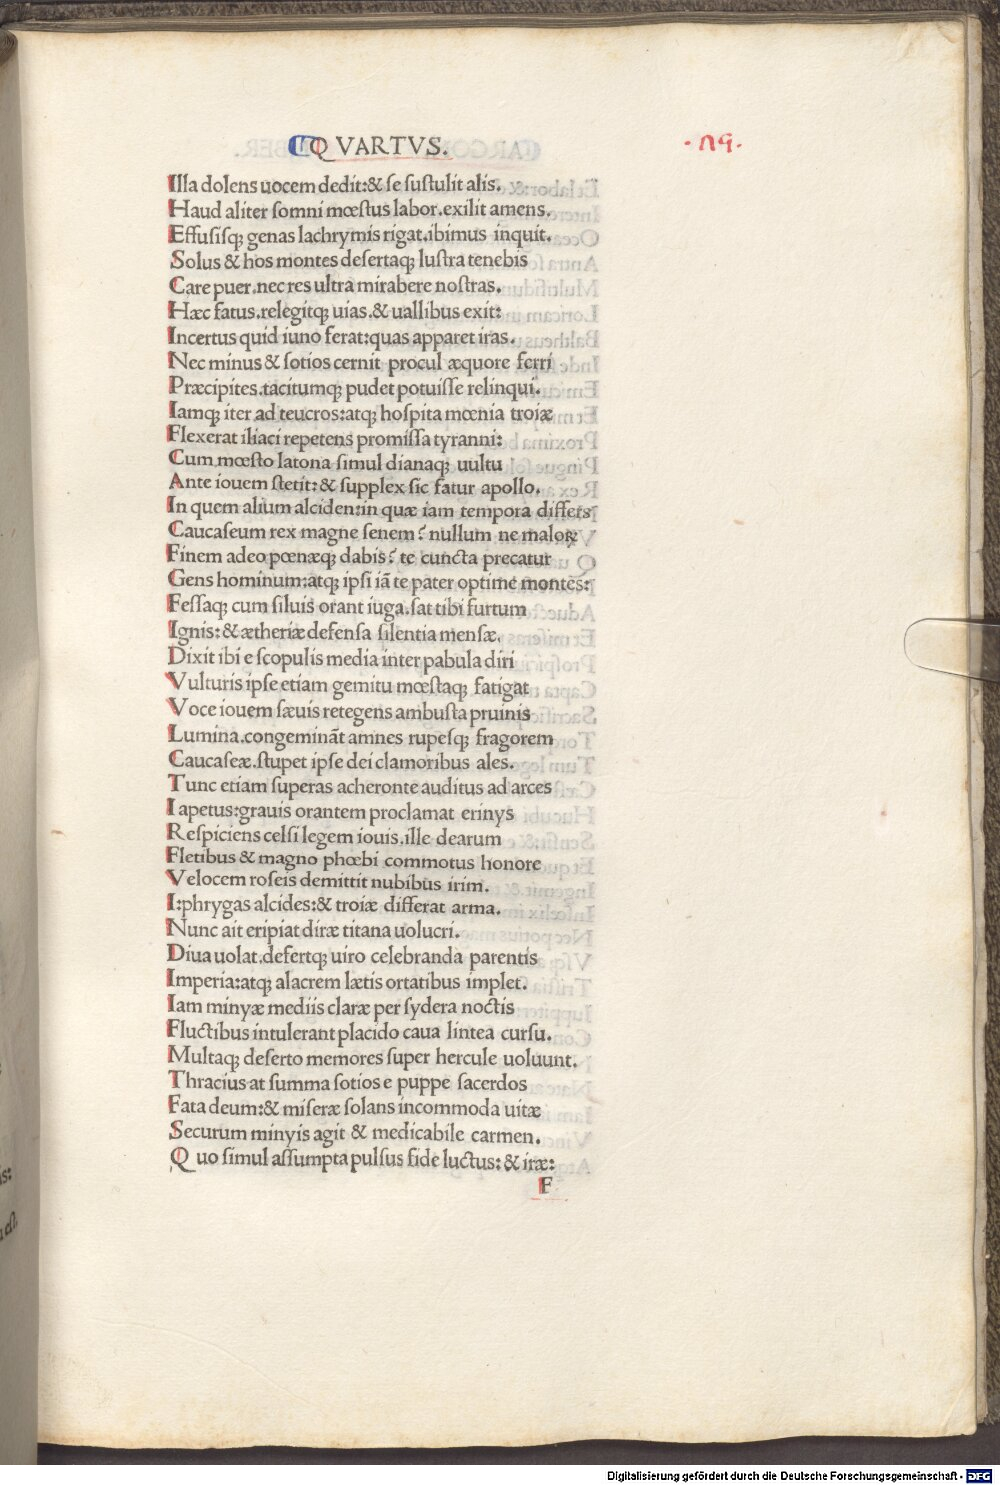 QVARTVS.
Illa dolens uocem dedit:& se sustulit alis.
Haud aliter somni mœstus labor.exilit amens.
Effusisq; genas lachrymis rigat.ibimus inquit.
Solus & hos montes desertaq; lustra tenebis
Care puer.nec res ultra mirabere nostras.
Hæc fatus.relegitq; uias.& uallibus exit:
Incertus quid iuno ferat:quas apparet iras.
Nec minus & sotios cernit procul æquore ferri
Præcipites.tacitumq; pudet potuisse relinqui.
Iamq; iter ad teucros:atq; hospita mœnia troiæ
Flexerat iliaci repetens promissa tyranni:
Cum mœsto latona simul dianaq; uultu
Ante iouem stetit:& supplex sic fatur apollo.
In quem alium alciden:in quæ iam tempora differs
Caucaseum rex magne senem? nullum ne maloꝝ
Finem adeo pœnæq; dabis? te cuncta precatur
Gens hominum:atq; ipsi iā te pater optime montes:
Fessaq; cum siluis orant iuga.sat tibi furtum
Ignis:& ætheriæ defensa silentia mensæ.
Dixit ibi e scopulis media inter pabula diri
Vulturis ipse etiam gemitu mœstaq; fatigat
Voce iouem sæuis retegens ambusta pruinis
Lumina.congemināt amnes rupesq; fragorem
Caucaseæ.stupet ipse dei clamoribus ales.
Tunc etiam superas acheronte auditus ad arces
Iapetus:grauis orantem proclamat erinys
Respiciens celsi legem iouis.ille dearum
Fletibus & magno phœbi commotus honore
Velocem roseis demittit nubibus irim.
I:phrygas alcides:& troiæ differat arma.
Nunc ait eripiat diræ titana uolucri.
Diua uolat.defertq; uiro celebranda parentis
Imperia:atq; alacrem lætis ortatibus implet.
Iam minyæ mediis claræ per sydera noctis
Fluctibus intulerant placido caua lintea cursu.
Multaq; deserto memores super hercule uoluunt.
Thracius at summa sotios e puppe sacerdos
Fata deum:& miseræ solans incommoda uitæ
Securum minyis agit & medicabile carmen.
Quo simul assumpta pulsus fide luctus:& iræ:
F
Digitalisierung gefördert durch die Deutsche Forschungsgemeinschaft - DFG